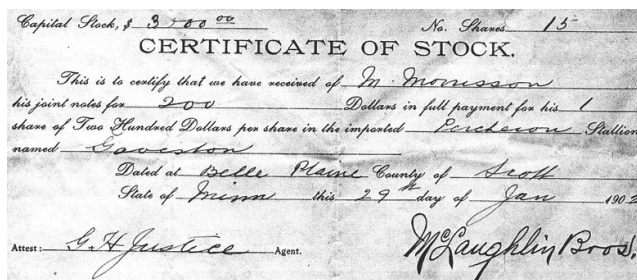 Capital Stock, $ 3000 00 No. Shares 15
CERTIFICATE OF STOCK.
This is to certify that we have received of M. Morrisson
his joint notes for 200 Dollars in full payment for his 1
share of Two Hundred Dollars per share in the imported Percheron Stallion
named Gaveston
Dated at Belle Plaine County of Scott
State of Minn this 29th day of Jan 1902
Attest: G. H. Justice Agent. McLaughlin Bros.